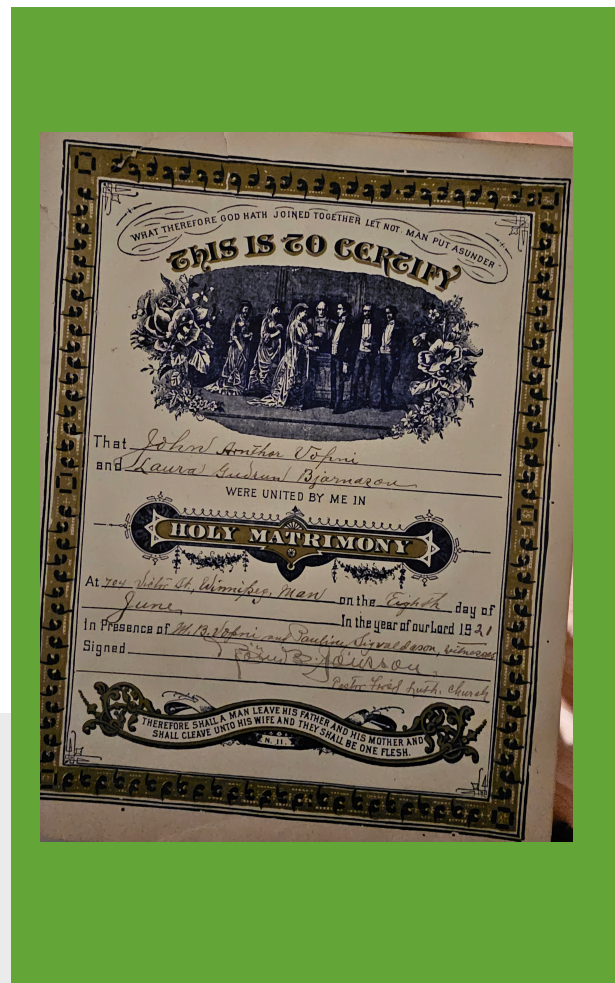 WHAT THEREFORE GOD HATH JOINED TOGETHER LET NOT MAN PUT ASUNDER
THIS IS TO CERTIFY
That John Arnthor Vopni
and Laura Gudrun Bjarnason
WERE UNITED BY ME IN
HOLY MATRIMONY
At 704 Victor St, Winnipeg, Man on the Eighth day of
June, In the year of our Lord 1921
In Presence of M. B. Vopni and Pauline Sigvaldason, witnesses
Signed Johnson
Pastor First Luth. Church
THEREFORE SHALL A MAN LEAVE HIS FATHER AND HIS MOTHER AND
SHALL CLEAVE UNTO HIS WIFE AND THEY SHALL BE ONE FLESH.
N. 11.